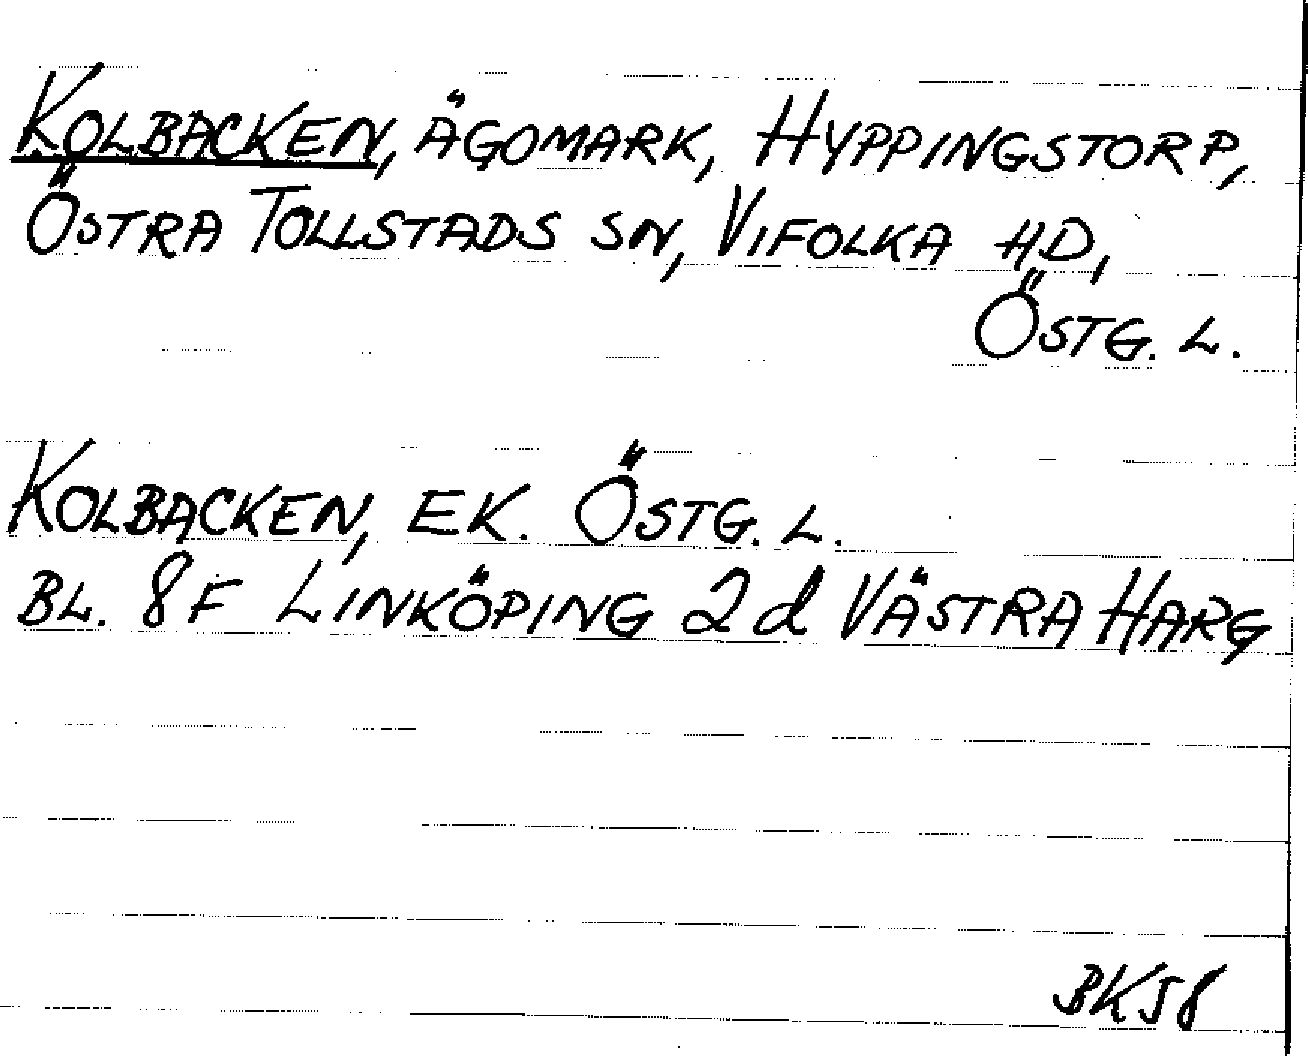 KOLBACKEN, ÄGOMARK, HYPPINGSTORP,
ÖSTRA TOLLSTADS SN, VIFOLKA HD,
ÖSTG. L.
KOLBACKEN, EK. ÖSTG. L.
BL. 8F LINKÖPING 2d VÄSTRA HARG
BK58